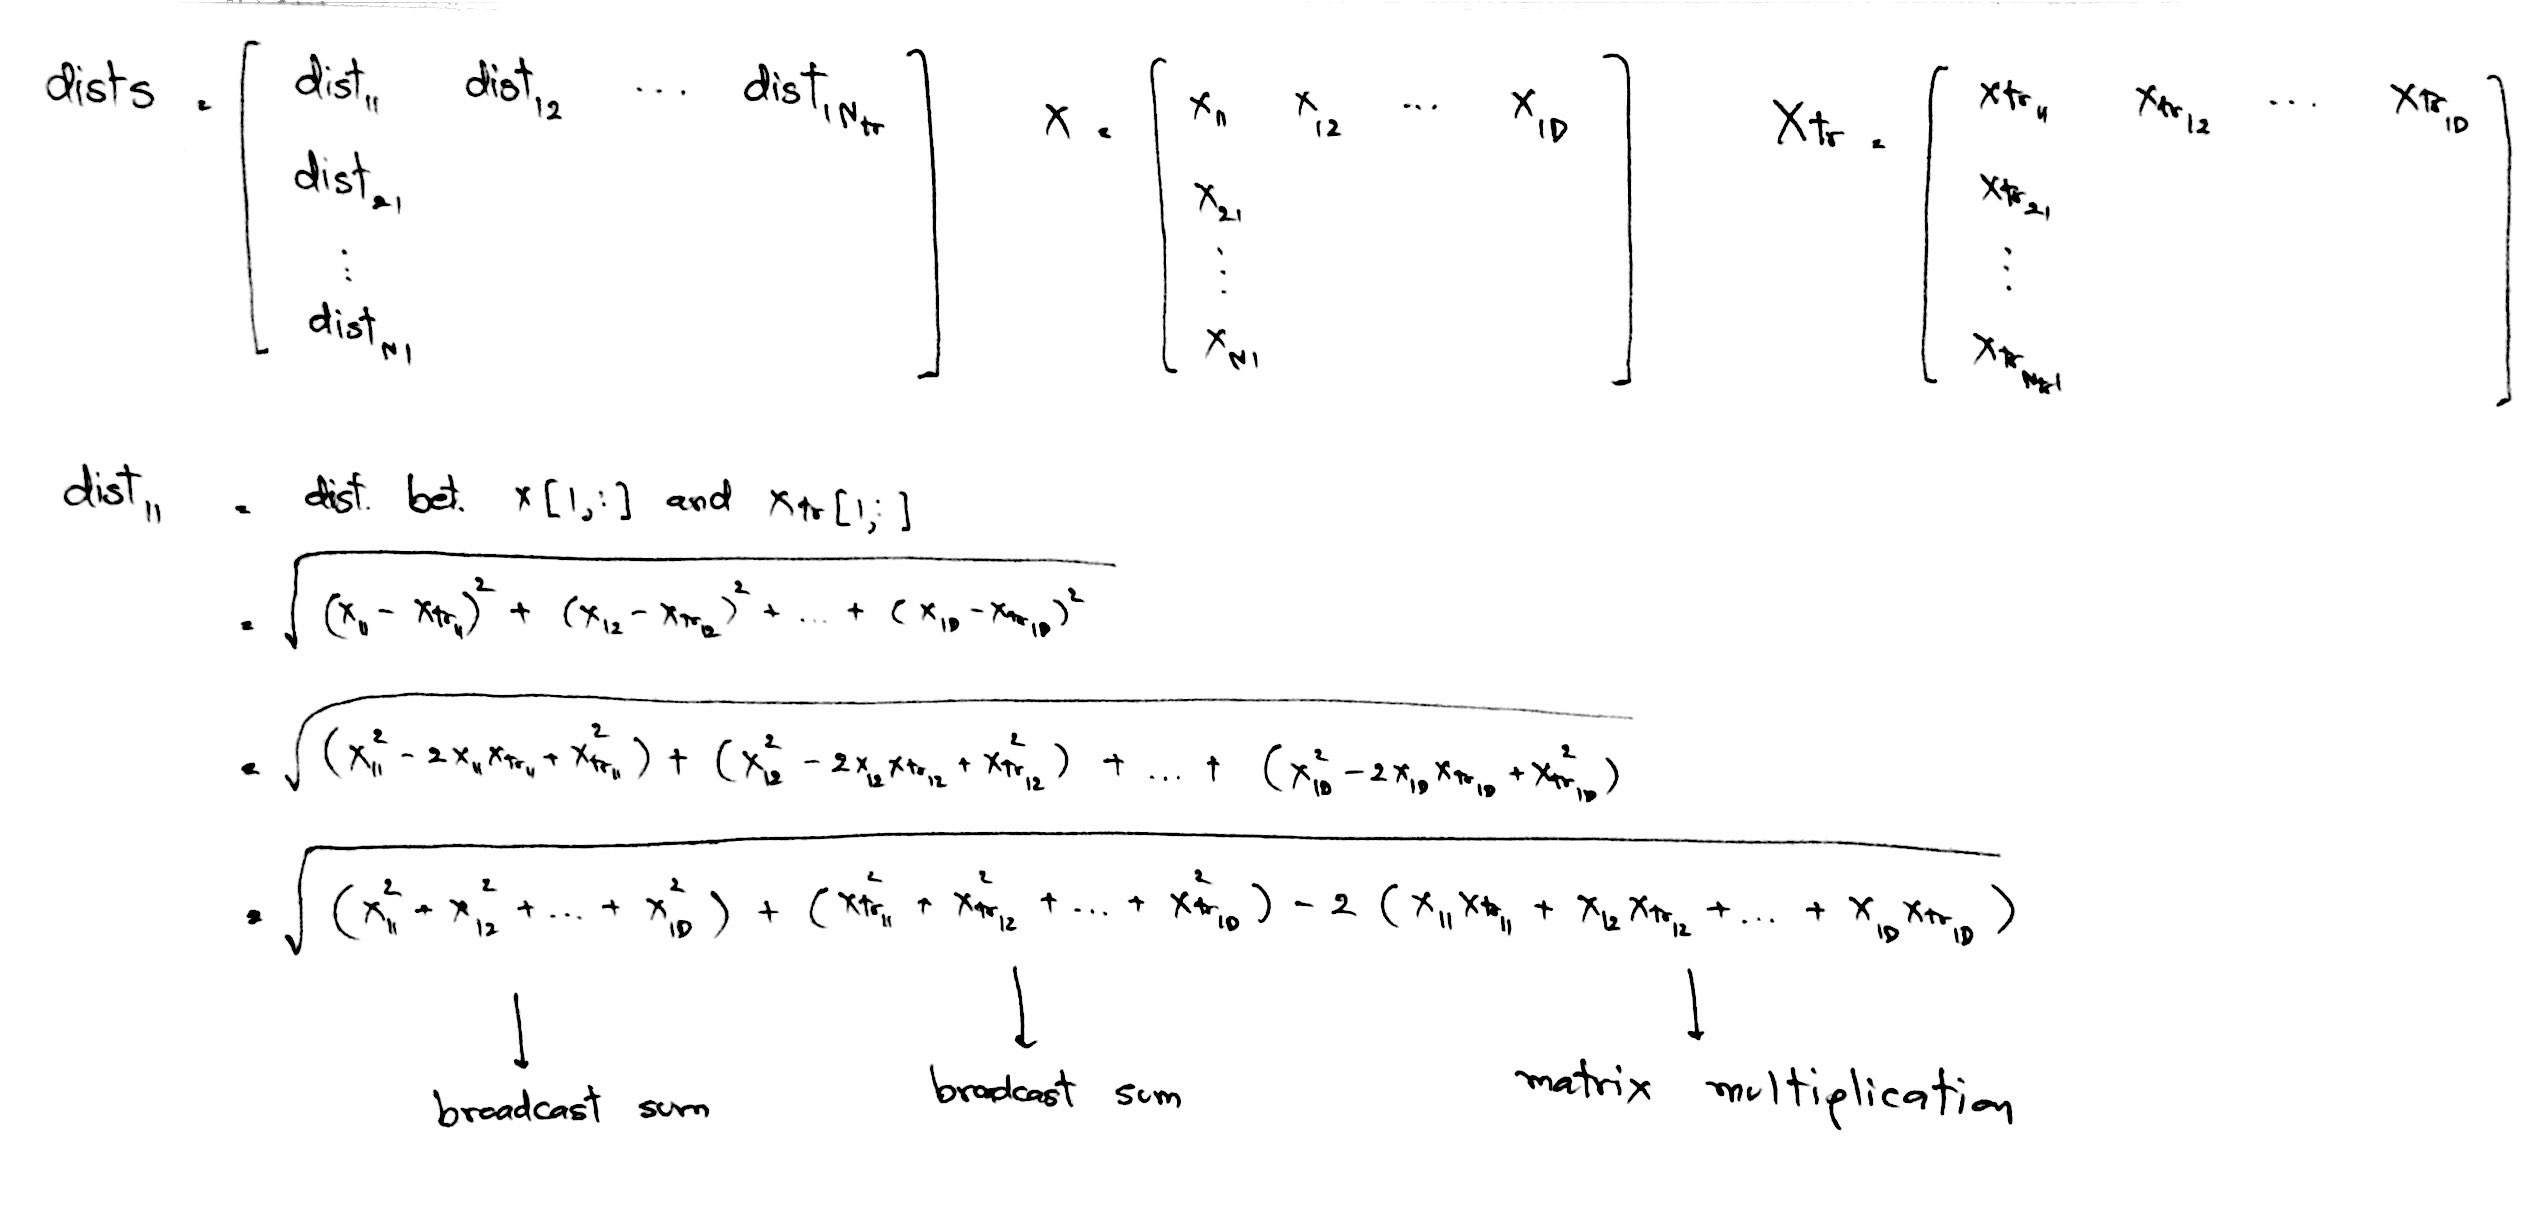 dists = [ dist₁₁ dist₁₂ ... dist₁Nₜᵣ X = [ x₁₁ x₁₂ ... x₁D ] Xtr = [ xtr₁₁ xtr₁₂ ... xtr₁D ]
dist₂₁ x₂₁ xtr₂₁
⋮ ⋮ ⋮
distN₁ xN₁ xtrNtr1
dist₁₁ = dist. bet. x[1,:] and xtr[1,:]
= √( (x₁₁ - xtr₁₁)² + (x₁₂ - xtr₁₂)² + ... + (x₁D - xtr₁D)² )
= √( (x₁₁² - 2x₁₁xtr₁₁ + xtr₁₁²) + (x₁₂² - 2x₁₂xtr₁₂ + xtr₁₂²) + ... + (x₁D² - 2x₁D xtr₁D + xtr₁D²) )
= √( (x₁₁² + x₁₂² + ... + x₁D²) + (xtr₁₁² + xtr₁₂² + ... + xtr₁D²) - 2 (x₁₁xtr₁₁ + x₁₂xtr₁₂ + ... + x₁D xtr₁D) )
↓ ↓ ↓
broadcast sum broadcast sum matrix multiplication